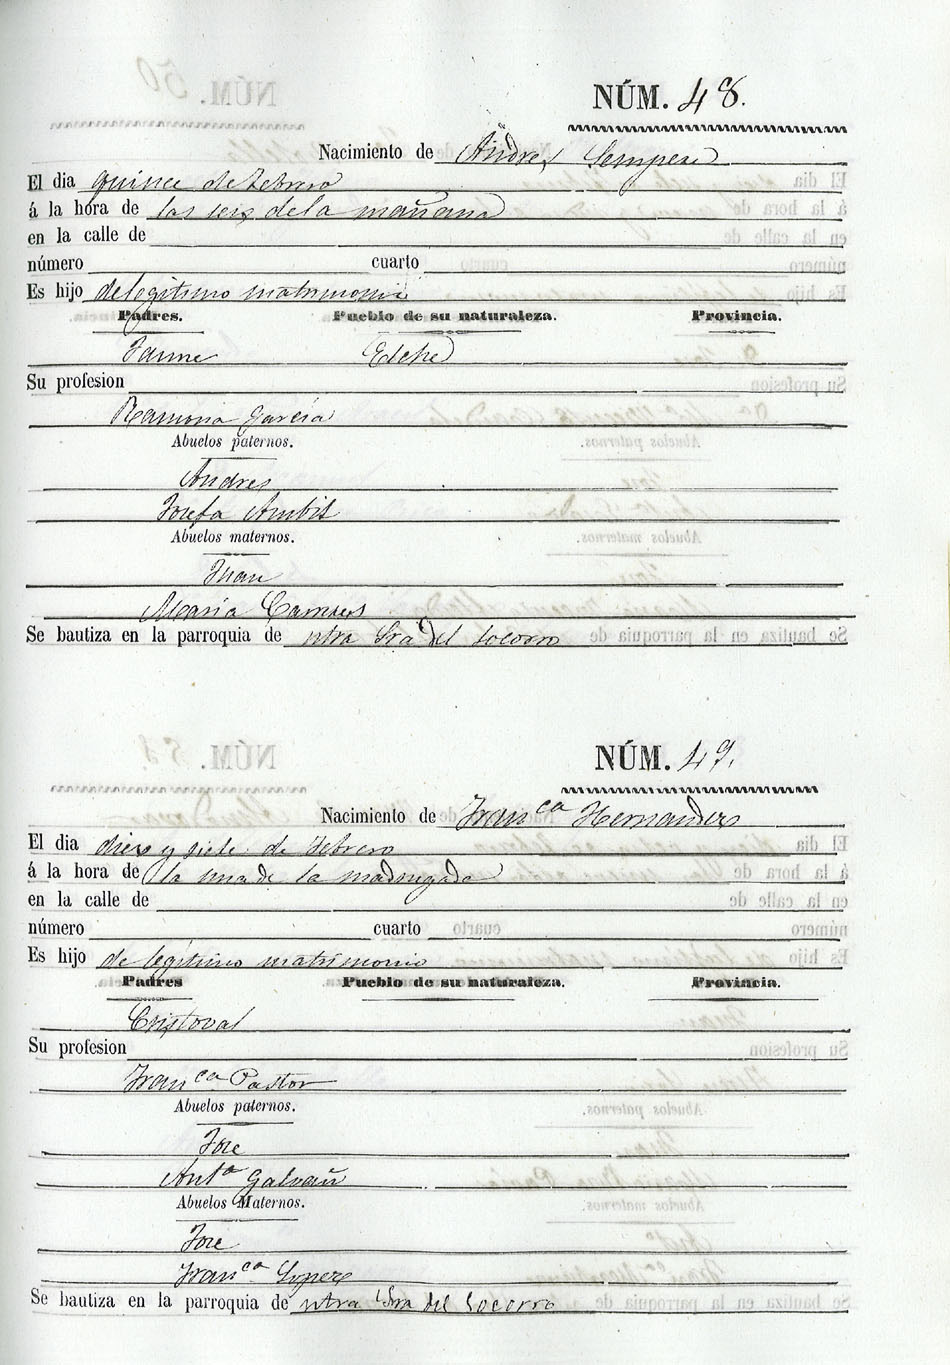 NÚM. 48.
Nacimiento de Andres Sempere
El dia quince de Febrero
á la hora de las seis de la mañana
en la calle de
número cuarto
Es hijo de legitimo matrimonio
Padres. Pueblo de su naturaleza. Provincia.
Jaime Elche
Su profesion
Ramona Garcia
Abuelos paternos.
Andres
Josefa Ambit
Abuelos maternos.
Juan
Maria
Se bautiza en la parroquia de ntra Sra del Socorro
NÚM. 49.
Nacimiento de Franca Hernandez
El dia diez y siete de Febrero
á la hora de la una de la madrugada
en la calle de
número cuarto
Es hijo de legitimo matrimonio
Padres Pueblo de su naturaleza. Provincia.
Cristoval
Su profesion
Franca Pastor
Abuelos paternos.
Jose
Anta Galvañ
Abuelos Maternos.
Jose
Franca Lopez
Se bautiza en la parroquia de ntra Sra del Socorro